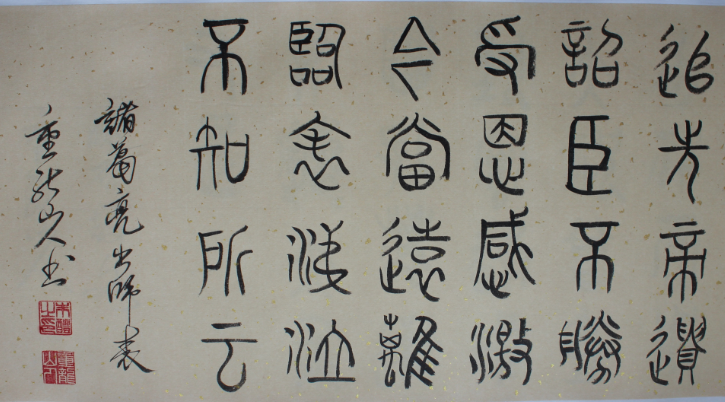 追先帝遺
詔臣不勝
受恩感激
今當遠離
臨表涕泣
不知所云
諸葛亮出師表
重龍山人书
重龍山人